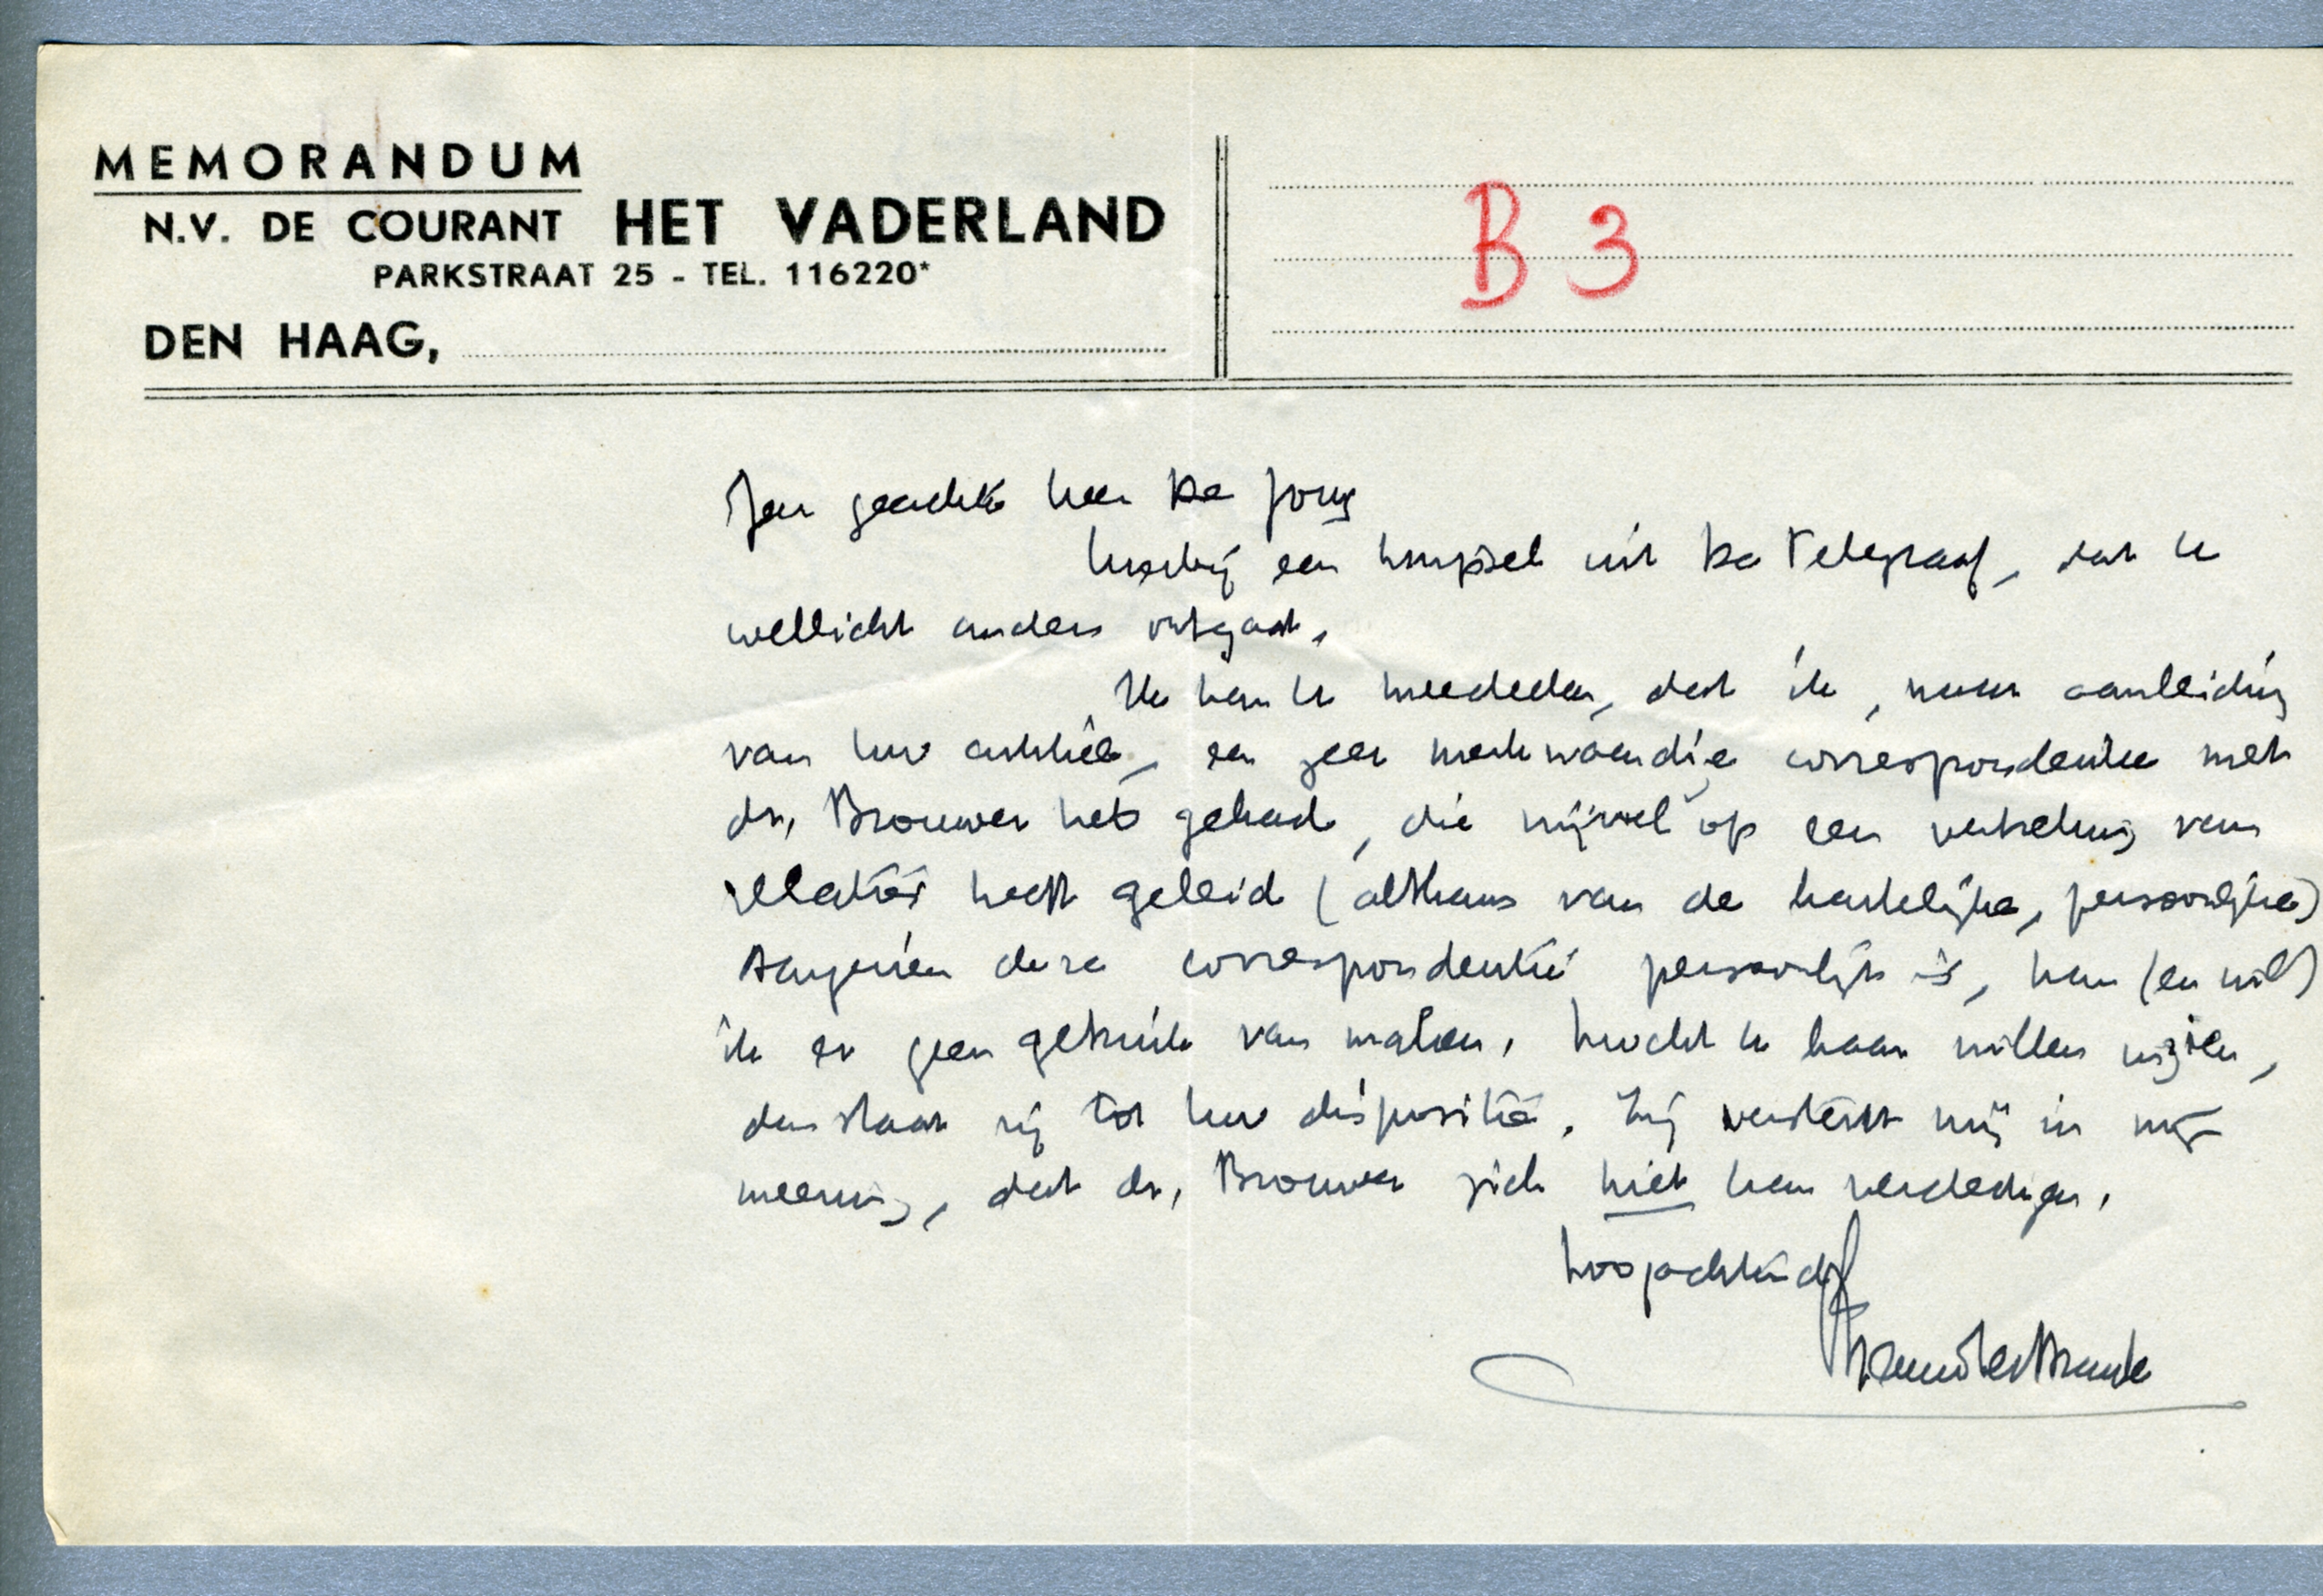 MEMORANDUM
N.V. DE COURANT HET VADERLAND
PARKSTRAAT 25 - TEL. 116220*
DEN HAAG,
B 3
Zeer geachte heer De Jong
hierbij een knipsel uit De Telegraaf, dat U
wellicht anders ontgaat.
Ik kan U meedelen, dat ik, naar aanleiding
van Uw artikel, een zeer merkwaardige correspondentie met
dr. Brouwer heb gehad, die wel op een verbreking van
relaties heeft geleid (althans van de hartelijke, persoonlijke)
Aangezien deze correspondentie persoonlijk is, kan (en wil)
ik er geen gebruik van maken. Mocht U haar willen inzien,
dan staat zij tot Uw dispositie. Zij versterkt mij in mijn
meening, dat dr. Brouwer zich niet kan verdedigen.
hoogachtend